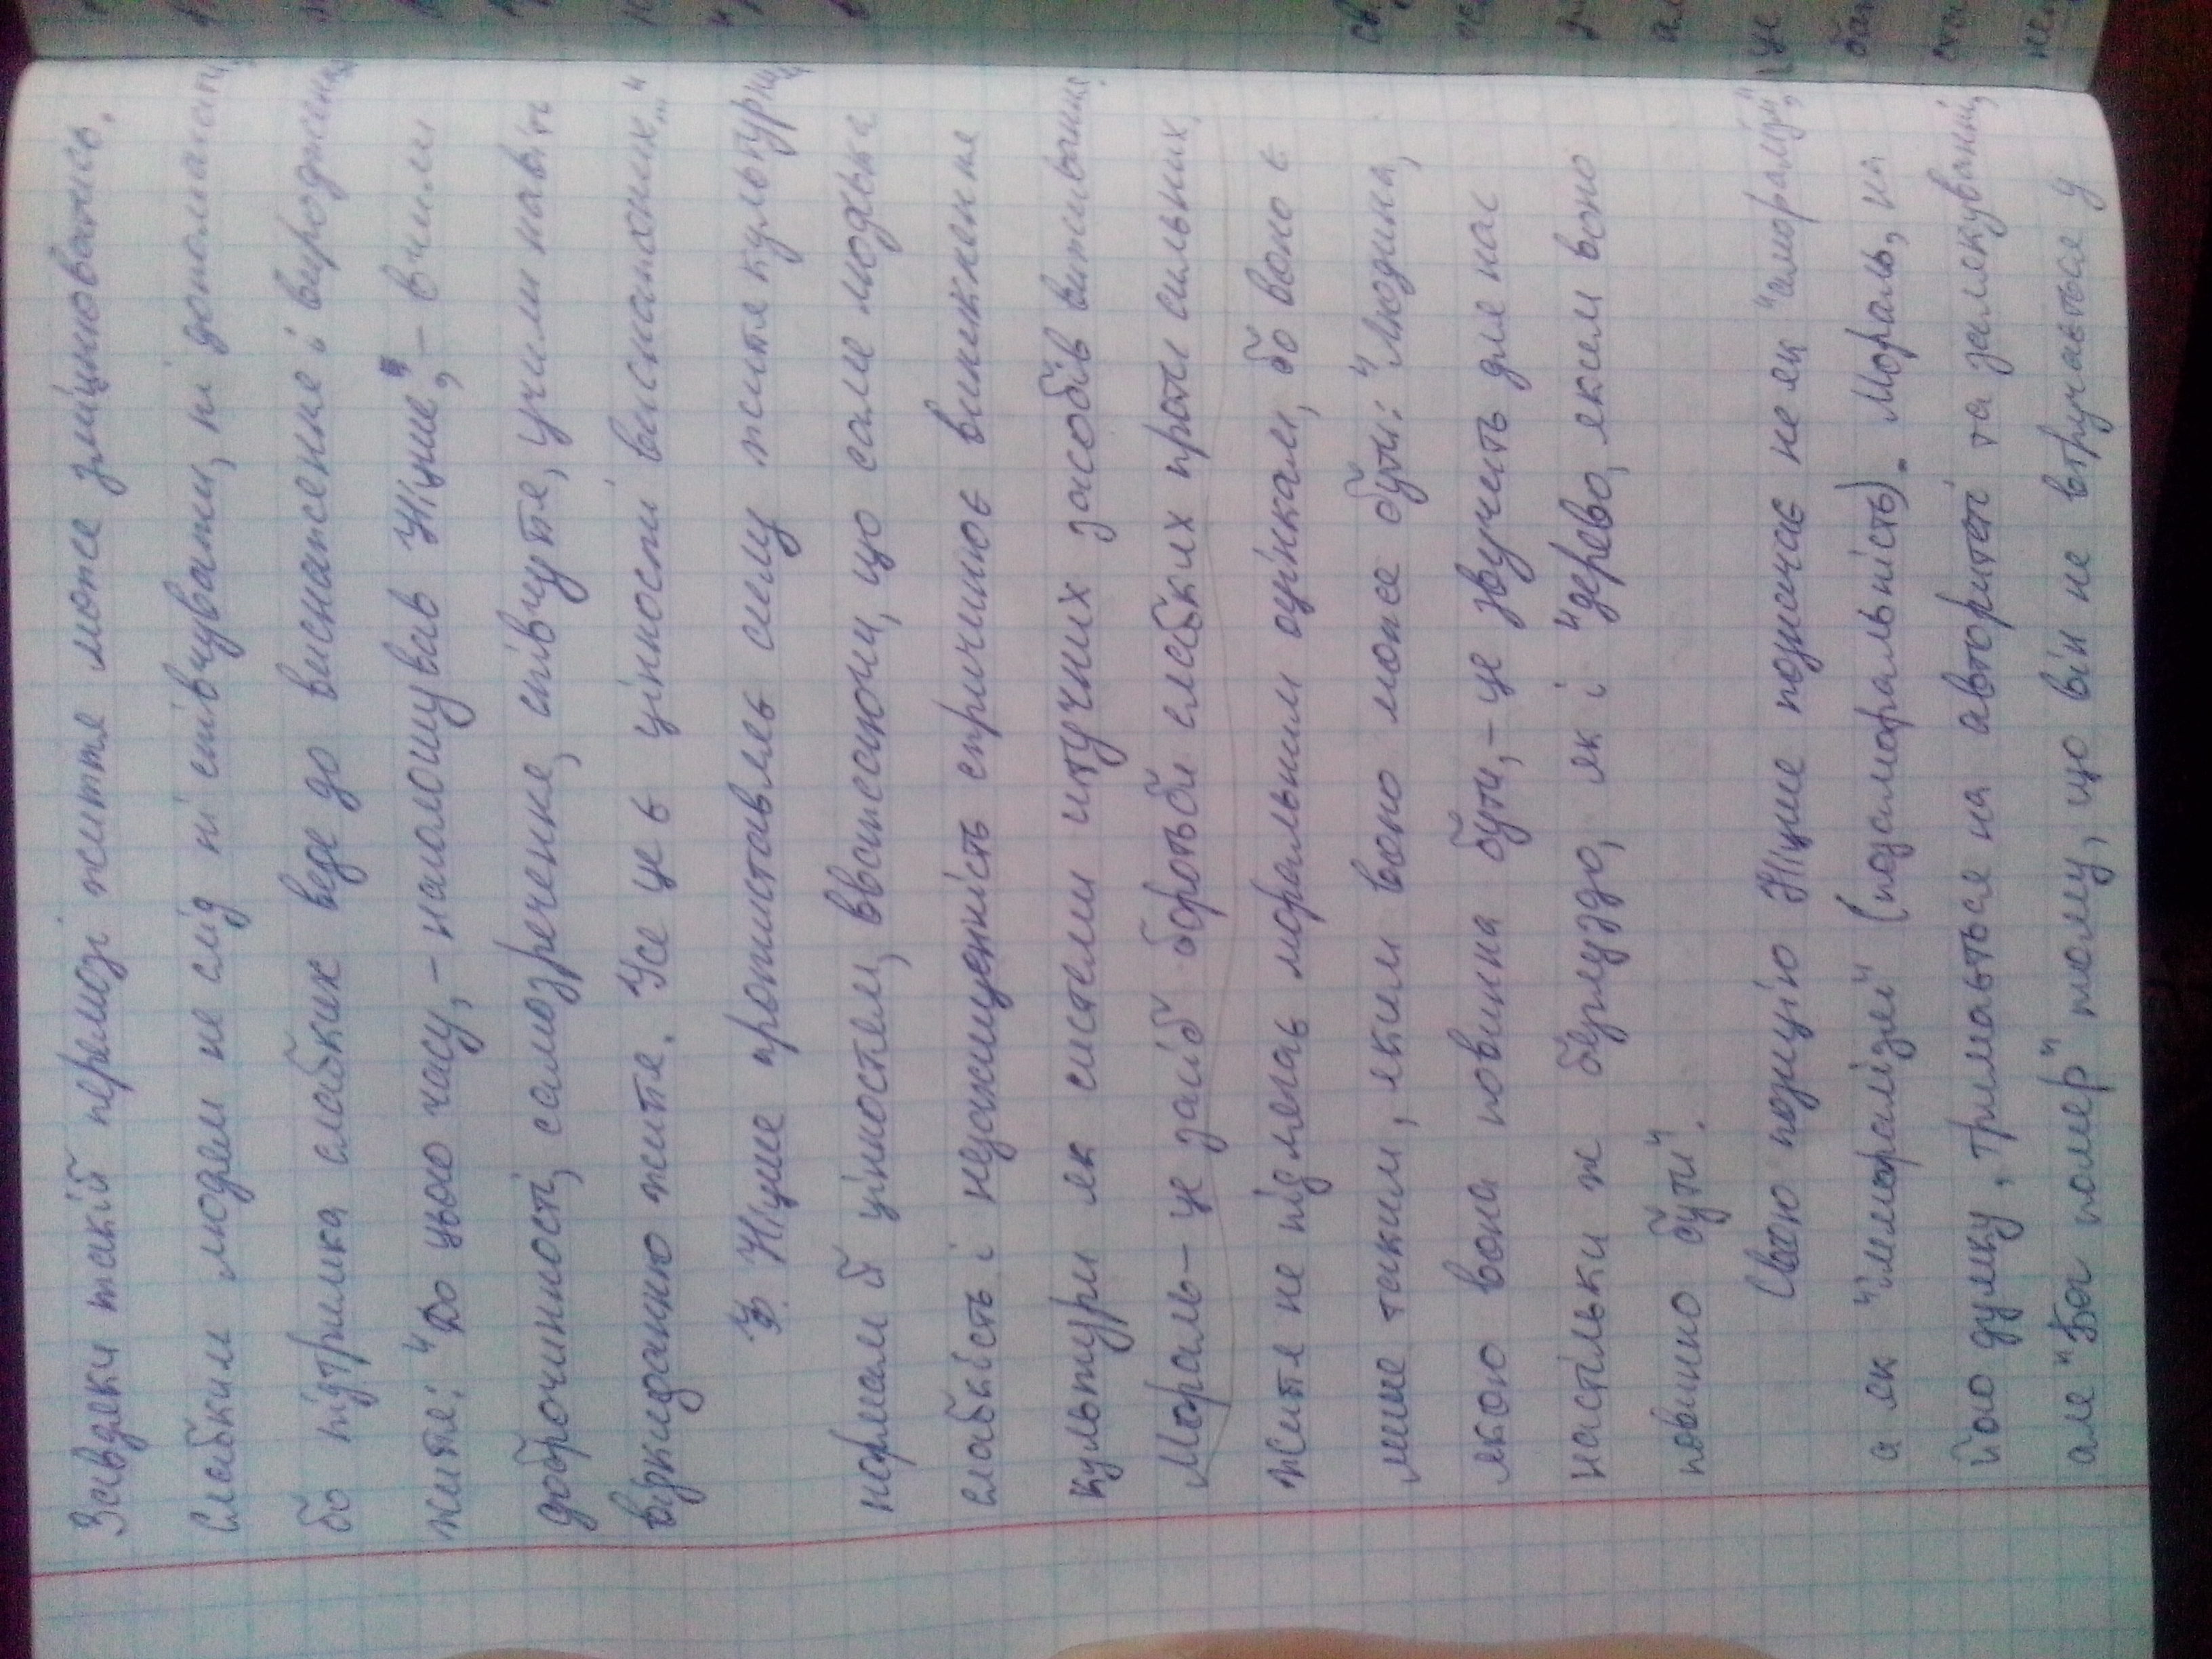 Завдяки такій перемозі життя може зміцнюватись.
Слабким людям не слід ні співчувати, ні допомагати,
бо підтримка слабких веде до виснаження і виродження
життя: "До цього часу, – наголошував Ніцше, – вчили
доброчинності, самозречення, співчуття, учили навіть
відкиданню життя. Усе це є цінності виснажених..."
Ф. Ніцше протиставляє силу життя культурним
нормам й цінностям, вважаючи, що саме людська
слабкість і незахищенність спричинює виникнення
культури як системи штучних засобів виживання.
Мораль – це засіб боротьби слабких проти сильних.
Життя не підлягає моральним оцінкам, бо воно є
лише таким, яким воно може бути: "Людина,
якою вона повинна бути, – це звучить для нас
настільки ж безглуздо, як і "дерево, яким воно
повинно бути".
Свою позицію Ніцше позначає не як "аморалізм",
а як "імморалізм" (позаморальність). Мораль, на
його думку, тримається на авторитеті та залякуванні,
але "Бог помер" тому, що він не втручається у